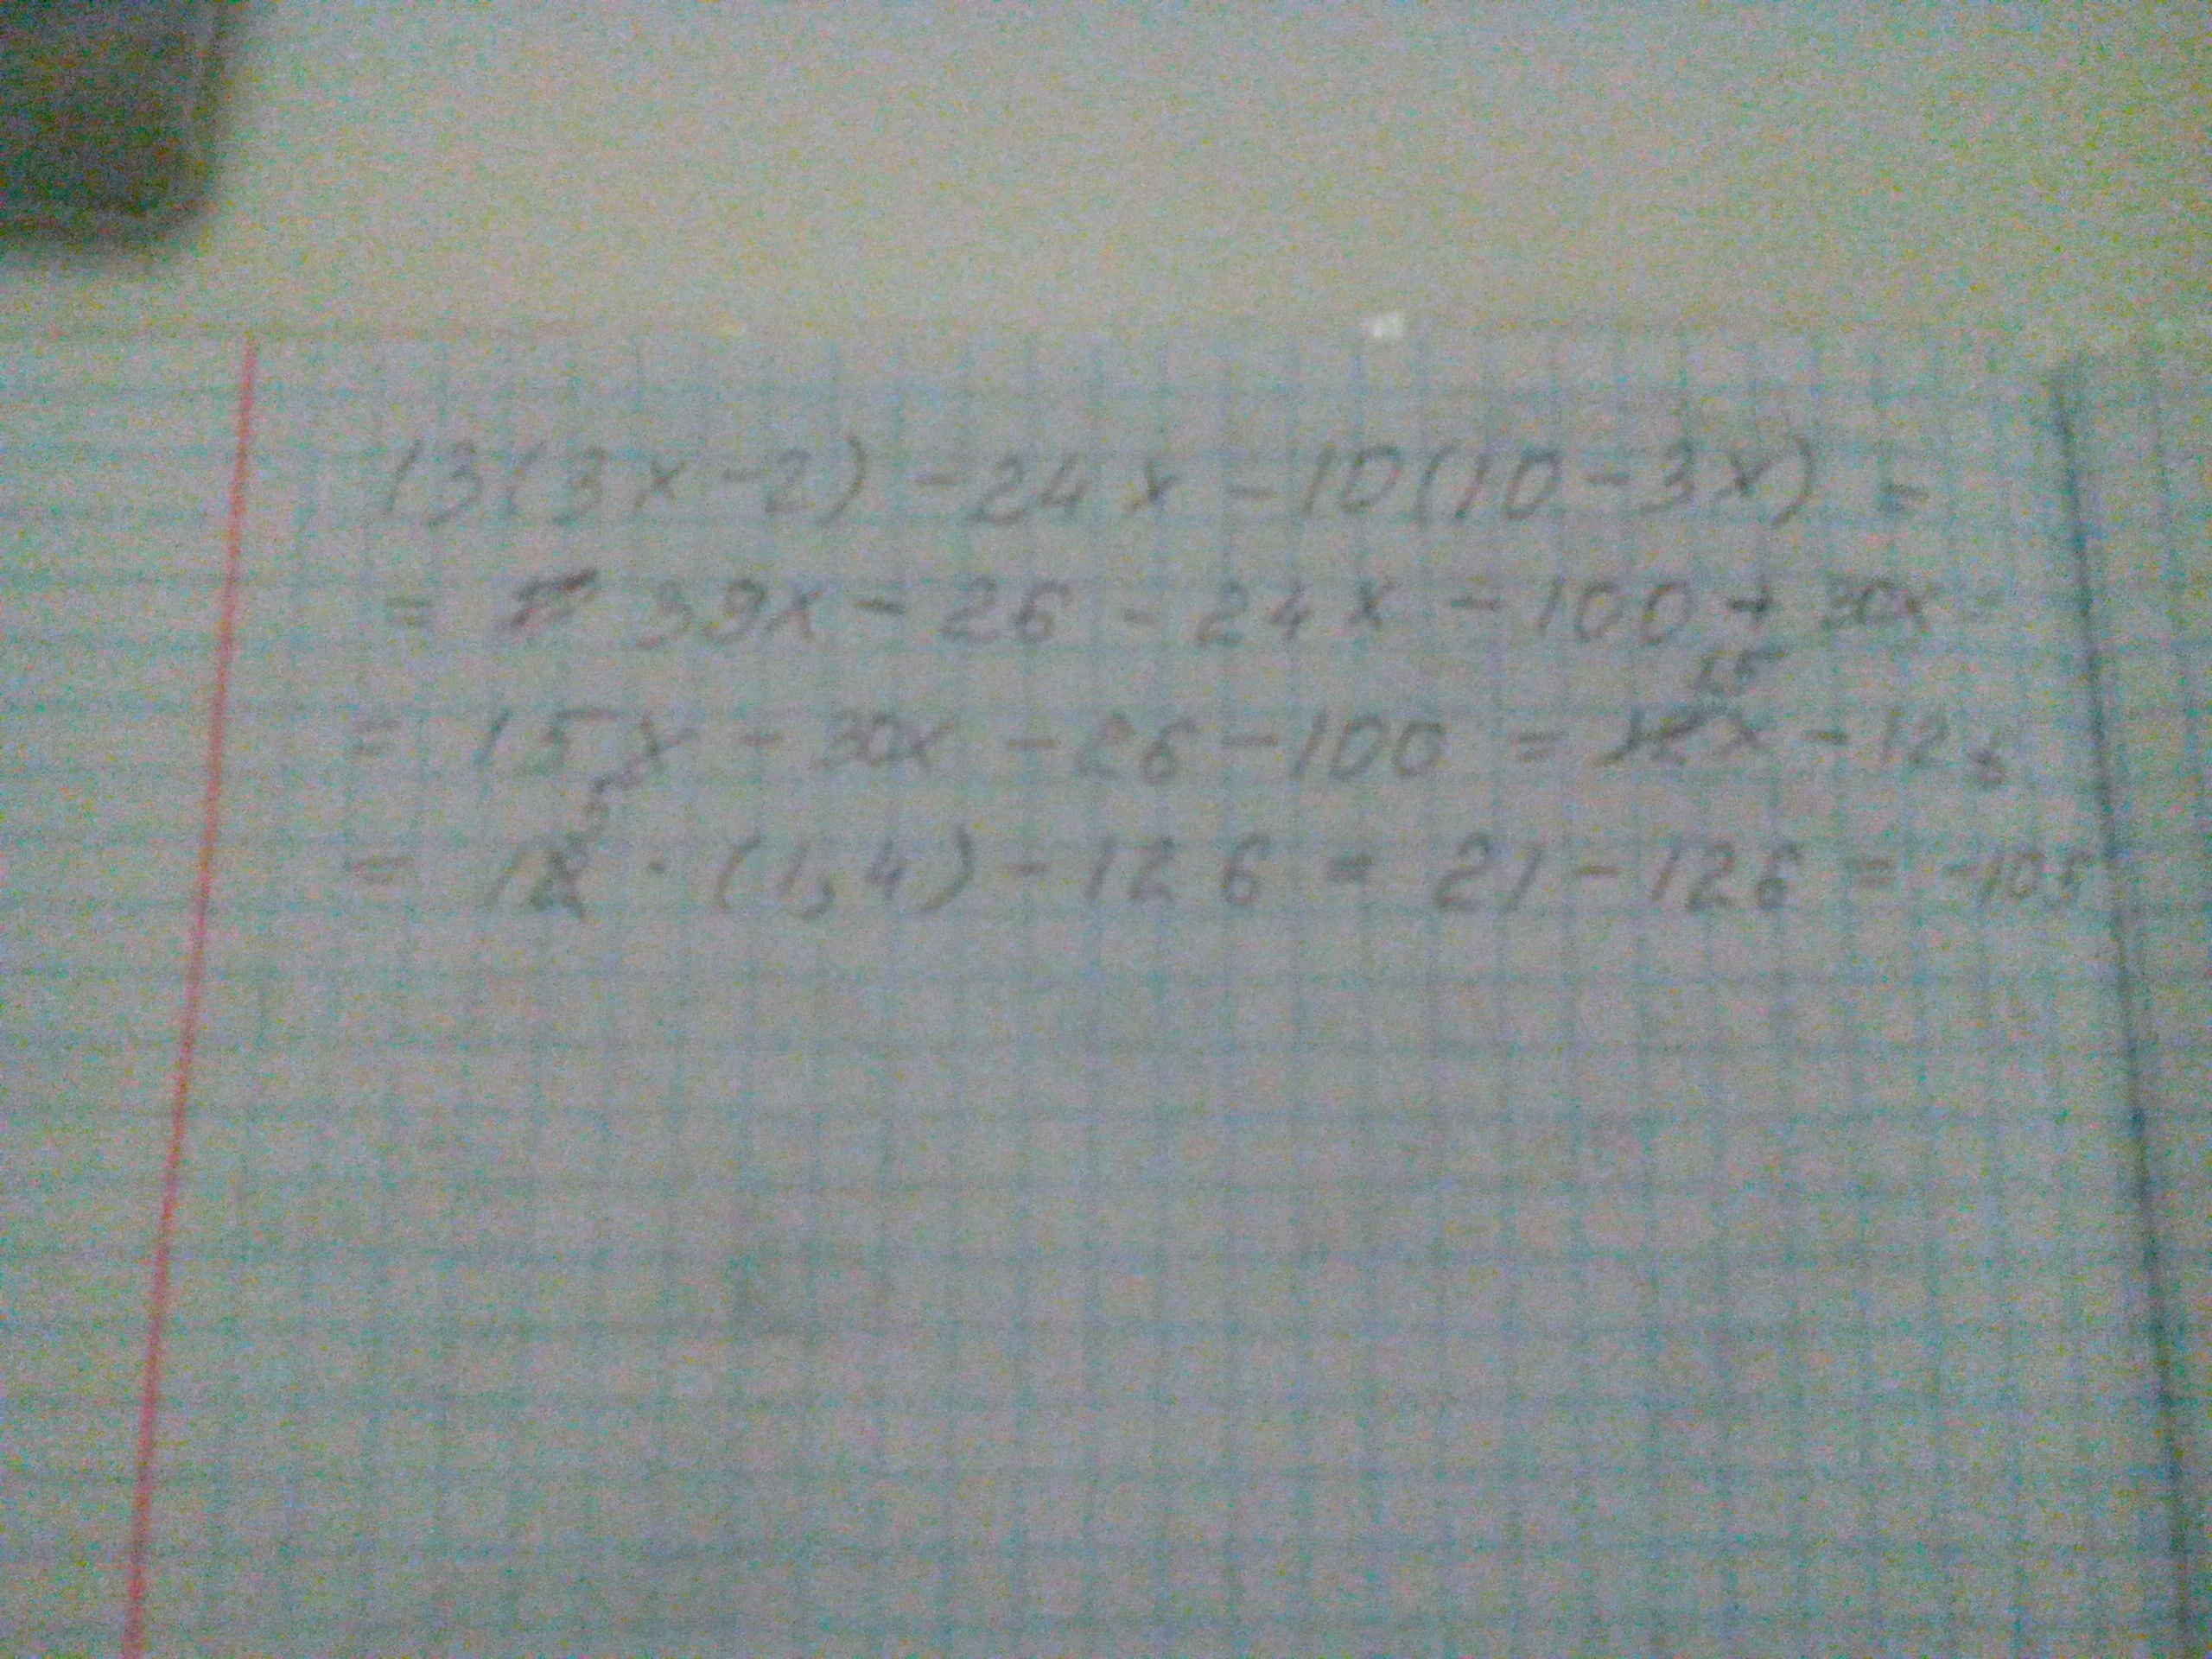 13(3x-2)-24x-10(10-3x)=
= 39x-26-24x-100+30x
= 15x-30x-26-100=15x-126
= 15·(1,4)-126=21-126=-105